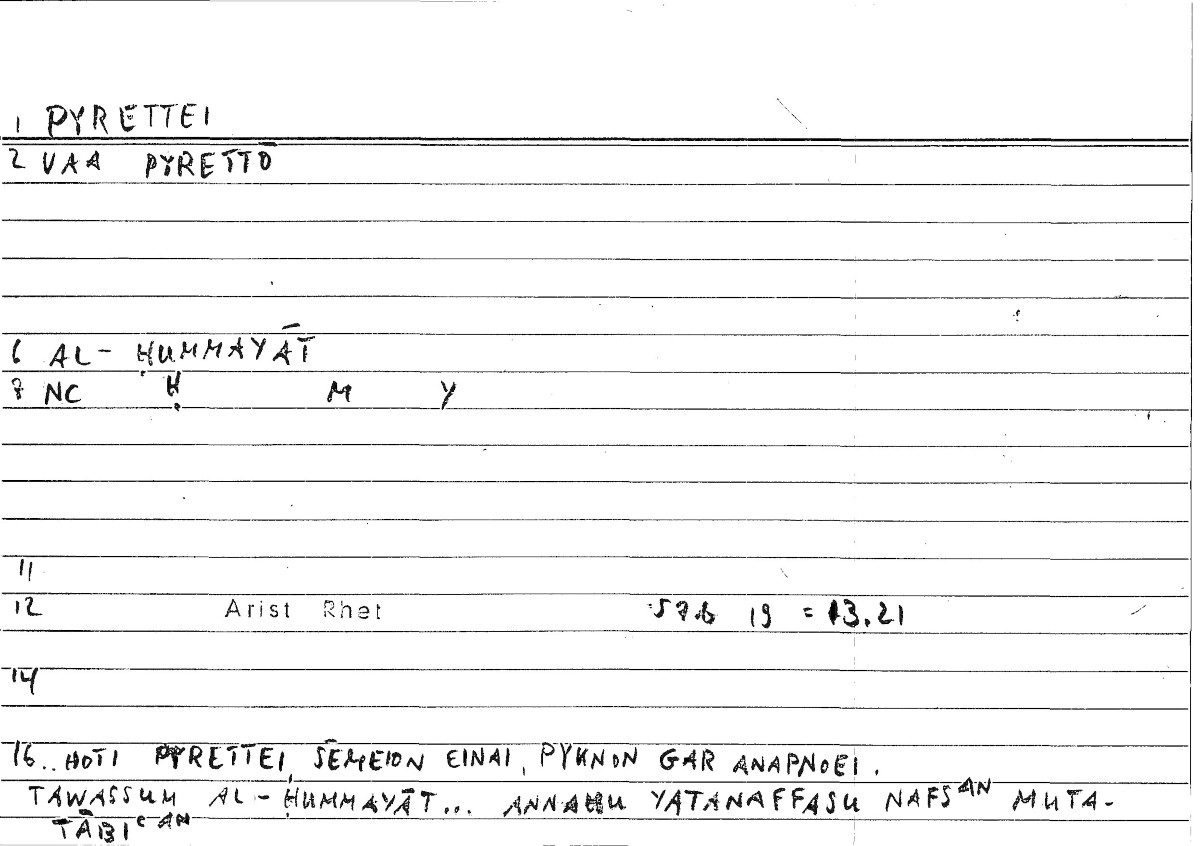 1 PYRETTEI
2 VAA PYRETTŌ
6 AL- ḤUMMAYĀT
8 NC Ḥ M Y
11
12 Arist Rhet 57b 19 = 13.21
14
16.. HOTI PYRETTEI, SĒMEION EINAI, PYKNON GAR ANAPNOEI.
TAWASSUM AL-ḤUMMAYĀT... ANNAHU YATANAFFASU NAFSᴬᴺ MUTA-
TĀBIᶜᴬᴺ